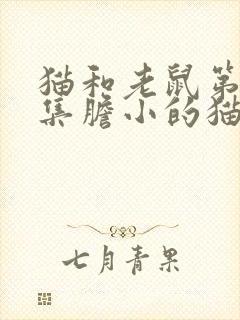 猫和老鼠第
集膽小的猫
七月青果